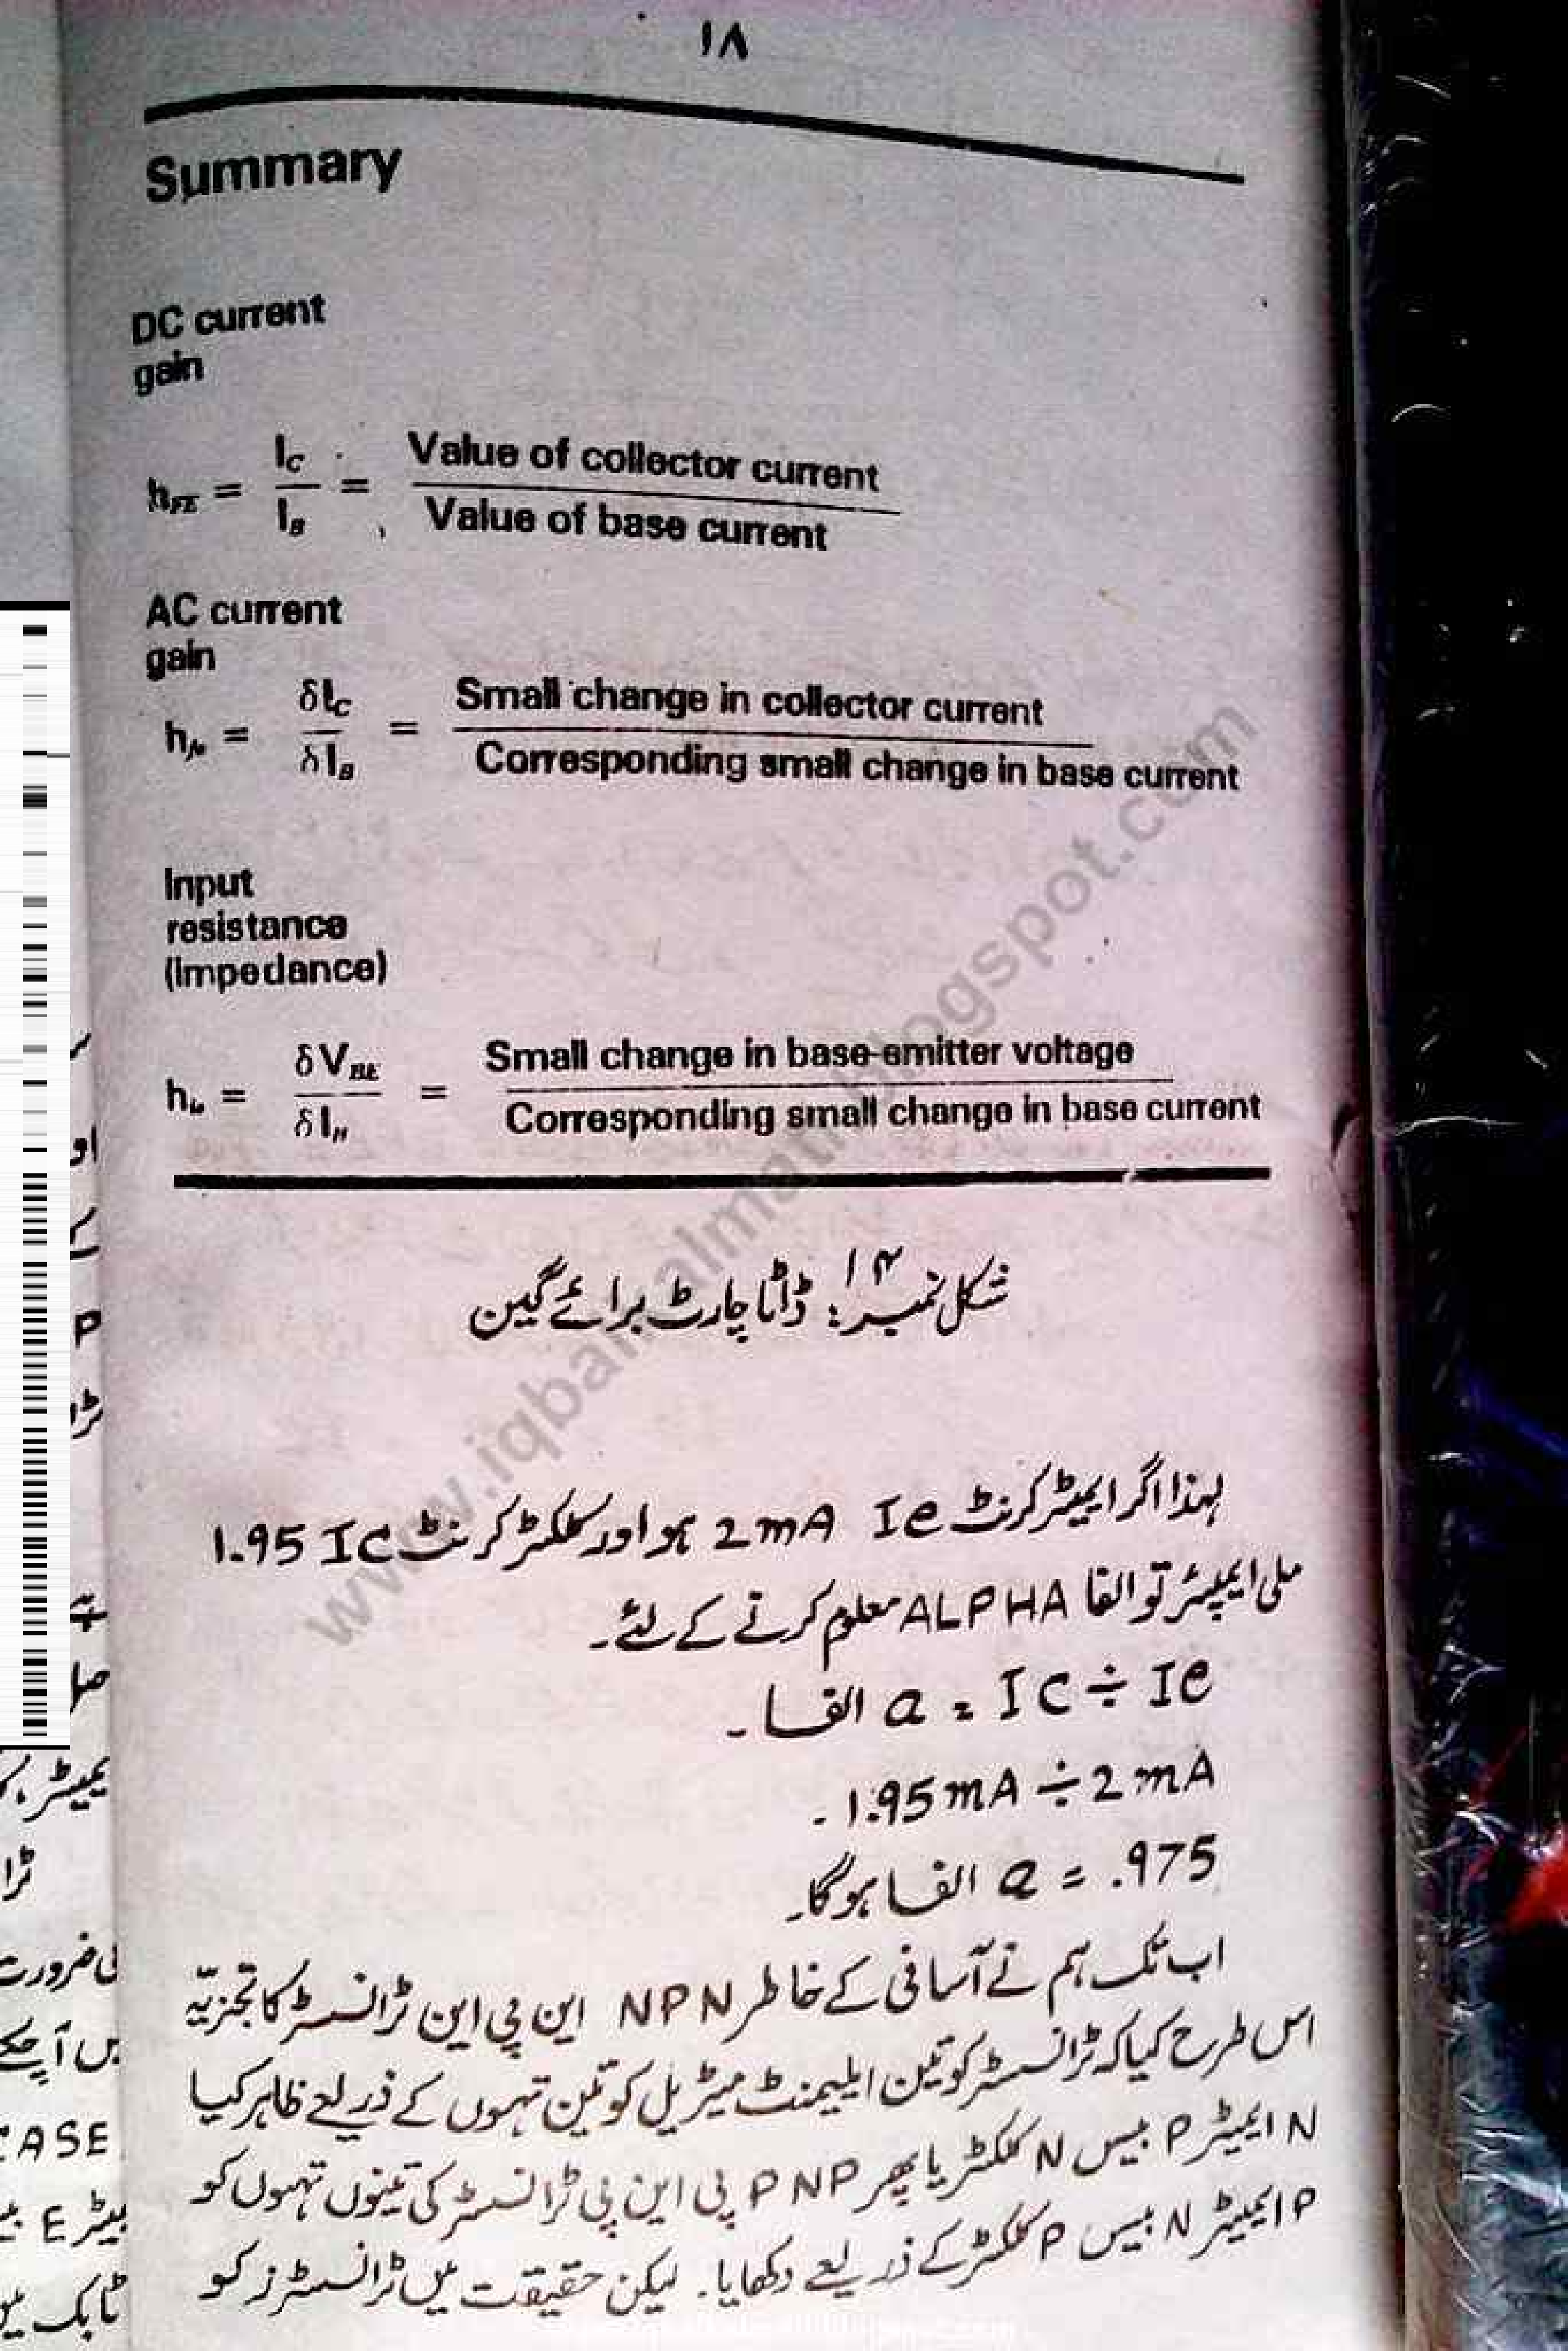 ۱۸
Summary
DC current
gain
hFE = IC / IB = Value of collector current / Value of base current
AC current
gain
hfe = δIC / δIB = Small change in collector current / Corresponding small change in base current
Input
resistance
(Impedance)
hie = δVBE / δIB = Small change in base-emitter voltage / Corresponding small change in base current
شکل نمبر ۱۴: ڈاٹا چارٹ برائے گین
لہٰذا اگر ایمیٹر کرنٹ Ie 2mA ہو اور کلکٹر کرنٹ Ic 1.95
ملی ایمپیئر تو الفا ALPHA معلوم کرنے کے لئے۔
الفا a = Ic ÷ Ie۔
1.95mA ÷ 2mA۔
a = .975 الفا ہوگا۔
اب تک ہم نے آسانی کے خاطر NPN این پی این ٹرانسسٹر کا تجزیہ
اس طرح کیا کہ ٹرانسسٹر کو تین ایلیمنٹ میٹریل کو تین تہوں کے ذریعے ظاہر کیا
N ایمیٹر P بیس N کلکٹر یا پھر PNP پی این پی ٹرانسسٹر کی تینوں تہوں کو
P ایمیٹر N بیس P کلکٹر کے ذریعے دکھایا۔ لیکن حقیقت میں ٹرانسسٹرز کو